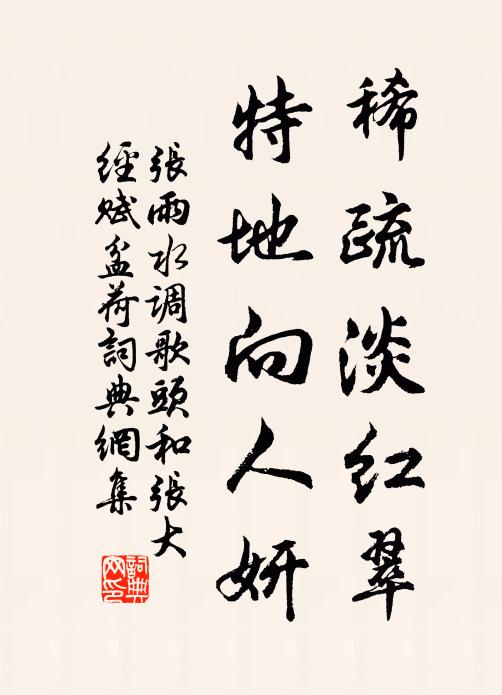 稀疏淡红翠
特地向人妍
張雨水调歌頭和張大
經赋盆荷詞典網集
詞典
网印